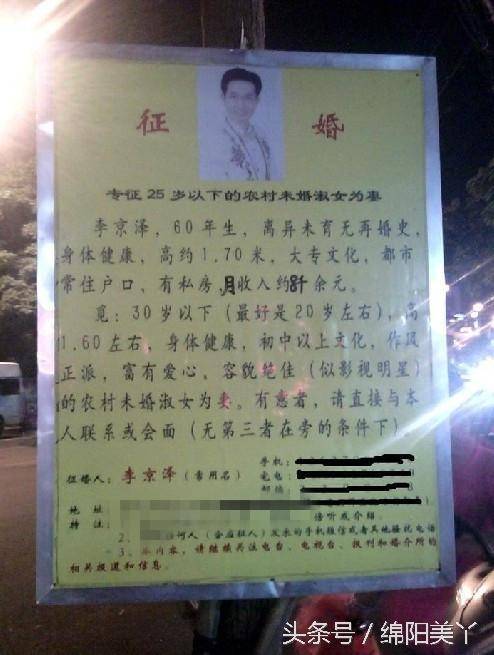 征 婚
专征25岁以下的农村未婚淑女为妻
李京泽，60年生，离异未育无再婚史，
身体健康，高约1.70米，大专文化，都市
常住户口，有私房，月收入约8千余元。
觅：30岁以下（最好是20岁左右），高
1.60左右，身体健康，初中以上文化，作风
正派，富有爱心，容貌绝佳（似影视明星）
的农村未婚淑女为妻。有意者，请直接与本
人联系或会面（无第三者在旁的条件下）。
手机：
征婚人：李京泽（常用名） 宅电：
邮编：
地址：
特注： 傍听或介绍。
2、 何人 发来的手机短信或者其他骚扰电话
3、 内容，请继续关注电台、电视台、报刊和婚介所的
相关报道和信息。
头条号／绵阳美丫